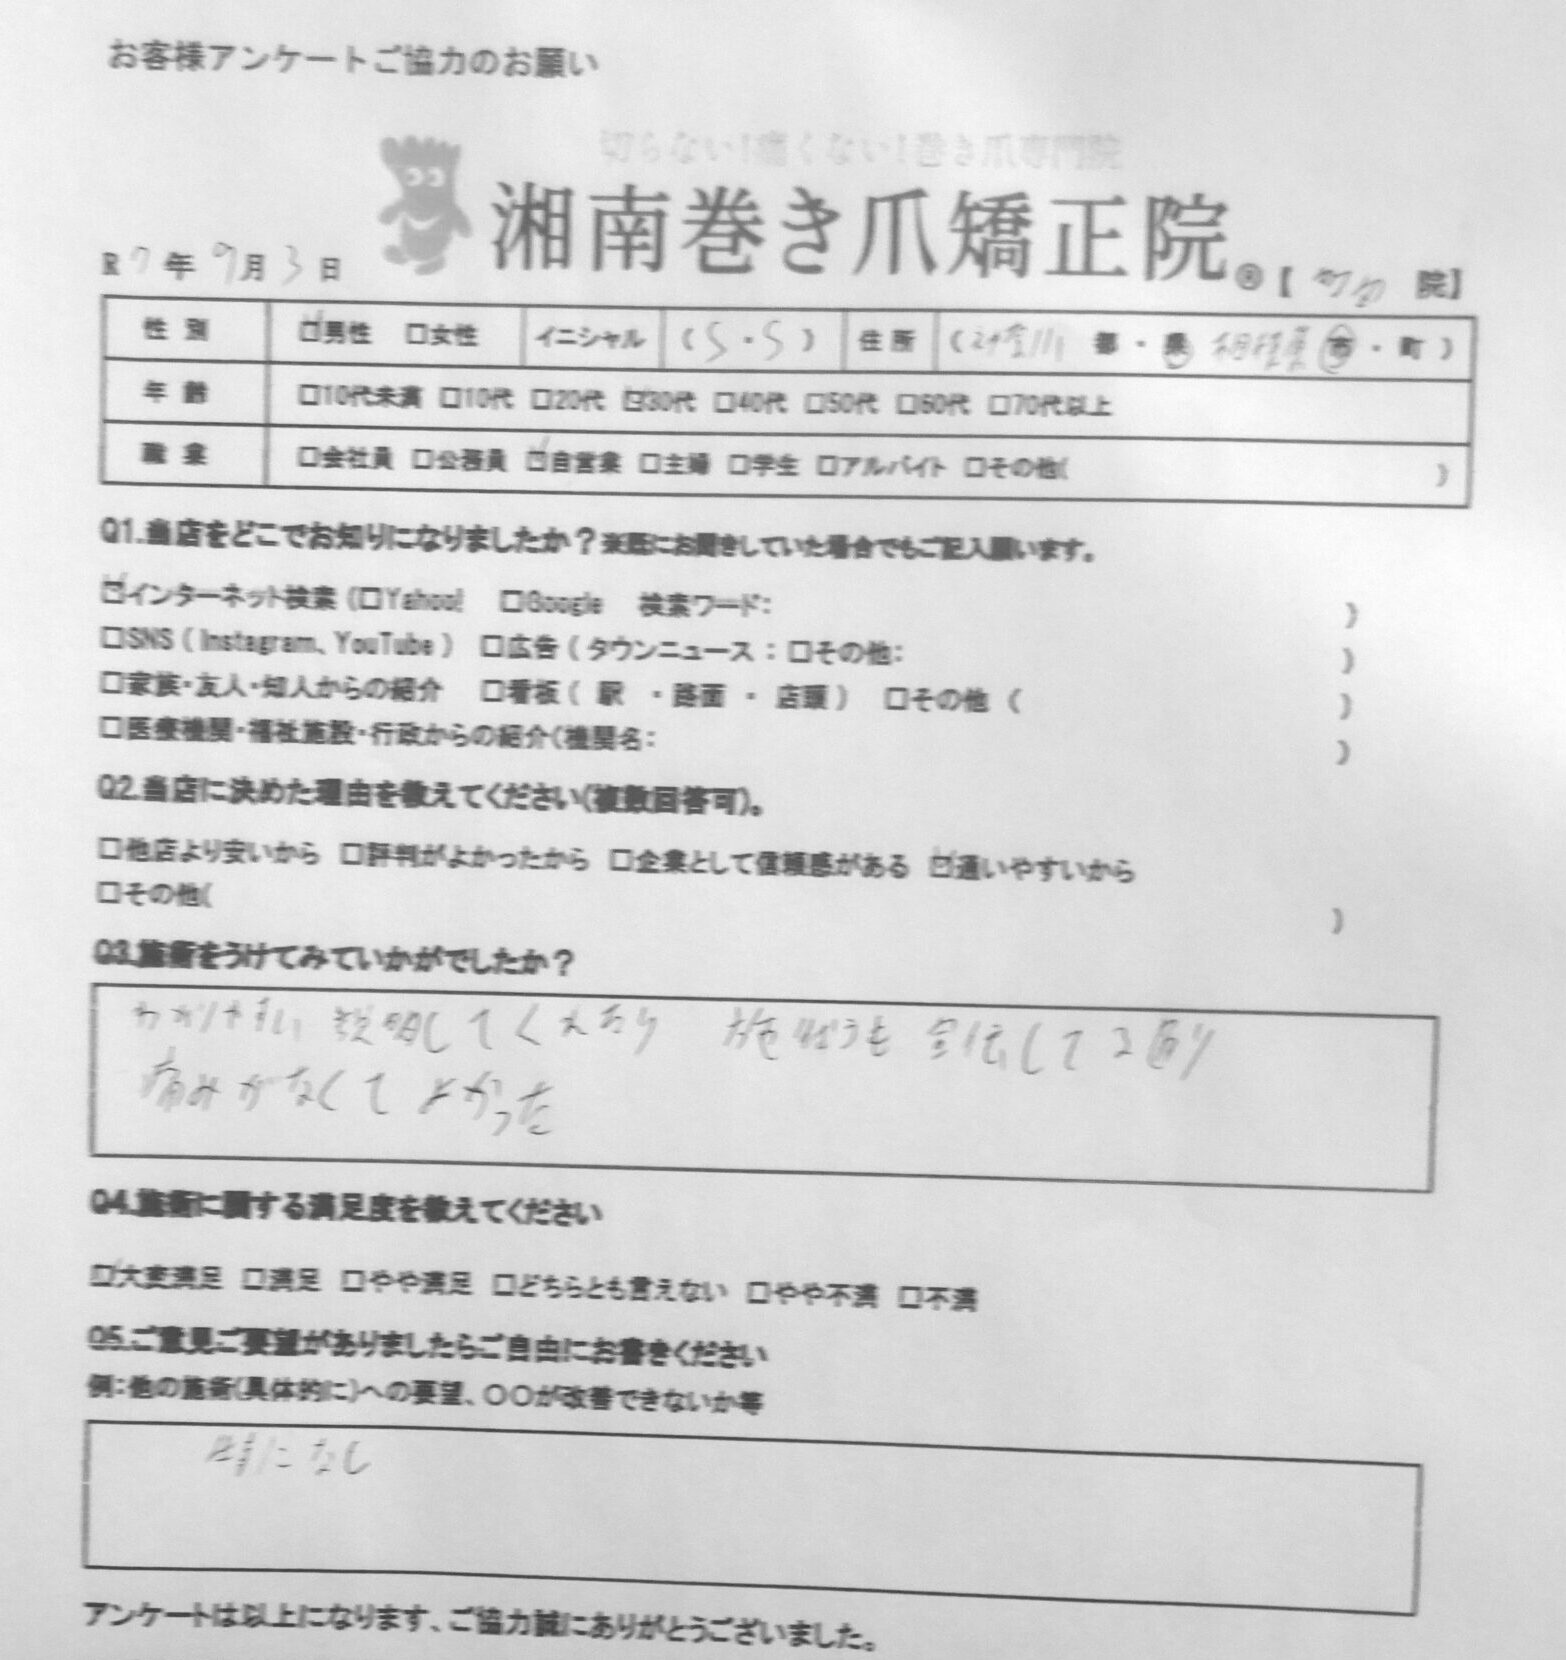 お客様アンケートご協力のお願い
切らない!痛くない!巻き爪専門院
湘南巻き爪矯正院®【町田 院】
R7年9月3日
性別 ☑男性 □女性 イニシャル (S・S) 住所 (神奈川 都・県 相模原 市・町)
年齢 □10代未満 □10代 □20代 ☑30代 □40代 □50代 □60代 □70代以上
職業 □会社員 □公務員 ☑自営業 □主婦 □学生 □アルバイト □その他( )
Q1.当店をどこでお知りになりましたか?※既にお聞きしていた場合でもご記入願います。
☑インターネット検索(□Yahoo! □Google 検索ワード: )
□SNS(Instagram、YouTube) □広告(タウンニュース:□その他: )
□家族・友人・知人からの紹介 □看板(駅・路面・店頭) □その他( )
□医療機関・福祉施設・行政からの紹介(機関名: )
Q2.当店に決めた理由を教えてください(複数回答可)。
□他店より安いから □評判がよかったから □企業として信頼感がある ☑通いやすいから
□その他( )
Q3.施術をうけてみていかがでしたか?
わかりやすい 説明してくれたり 施術も 宣伝してる通り
痛みがなくて よかった
Q4.施術に関する満足度を教えてください
☑大変満足 □満足 □やや満足 □どちらとも言えない □やや不満 □不満
Q5.ご意見ご要望がありましたらご自由にお書きください
例:他の施術(具体的に)への要望、〇〇が改善できないか等
特になし
アンケートは以上になります、ご協力誠にありがとうございました。